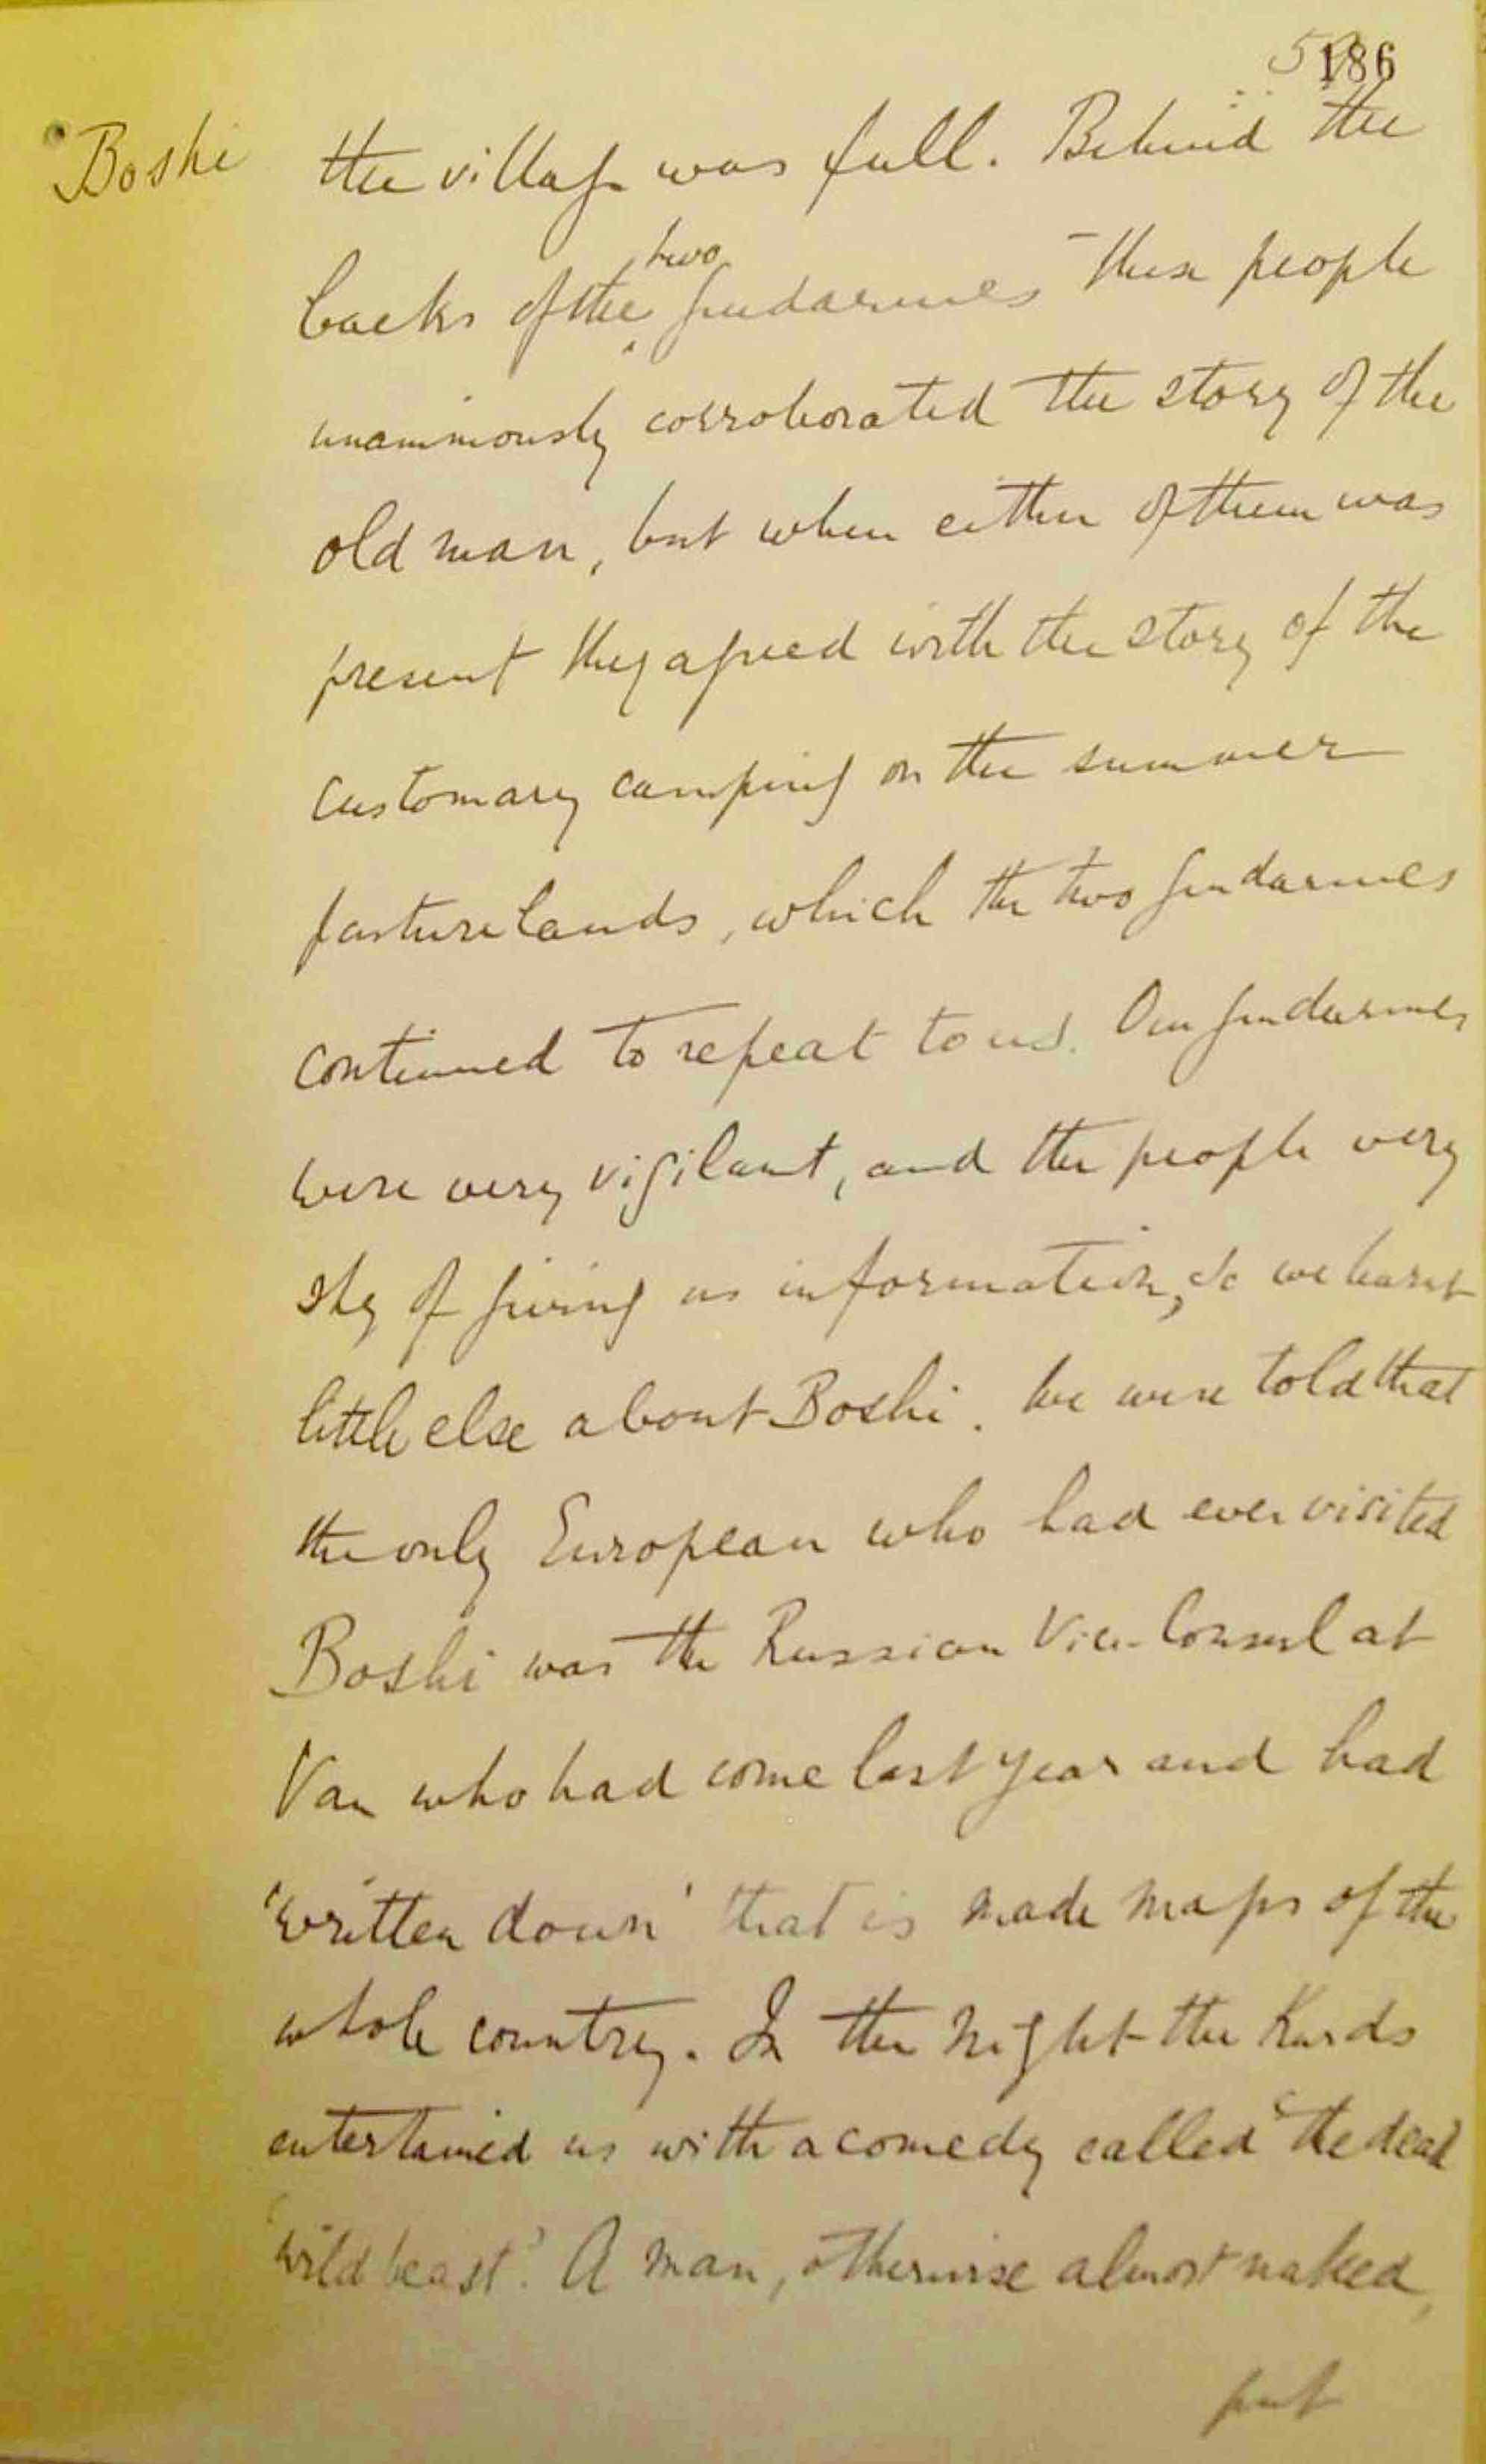 186
Boshi
the village was full. Behind the
two
backs of the gendarmes these people
unanimously corroborated the story of the
old man, but when either of them was
present they agreed with the story of the
customary camping on the summer
pasturelands, which the two gendarmes
continued to repeat to us. Our gendarmes
were very vigilant, and the people very
shy of giving us information, so we learnt
little else about Boshi. We were told that
the only European who had ever visited
Boshi was the Russian Vice-Consul at
Van who had come last year and had
'written down' that is made maps of the
whole country. In the night the Kurds
entertained us with a comedy called 'the dead
'wild beast'. A man, otherwise almost naked,
put